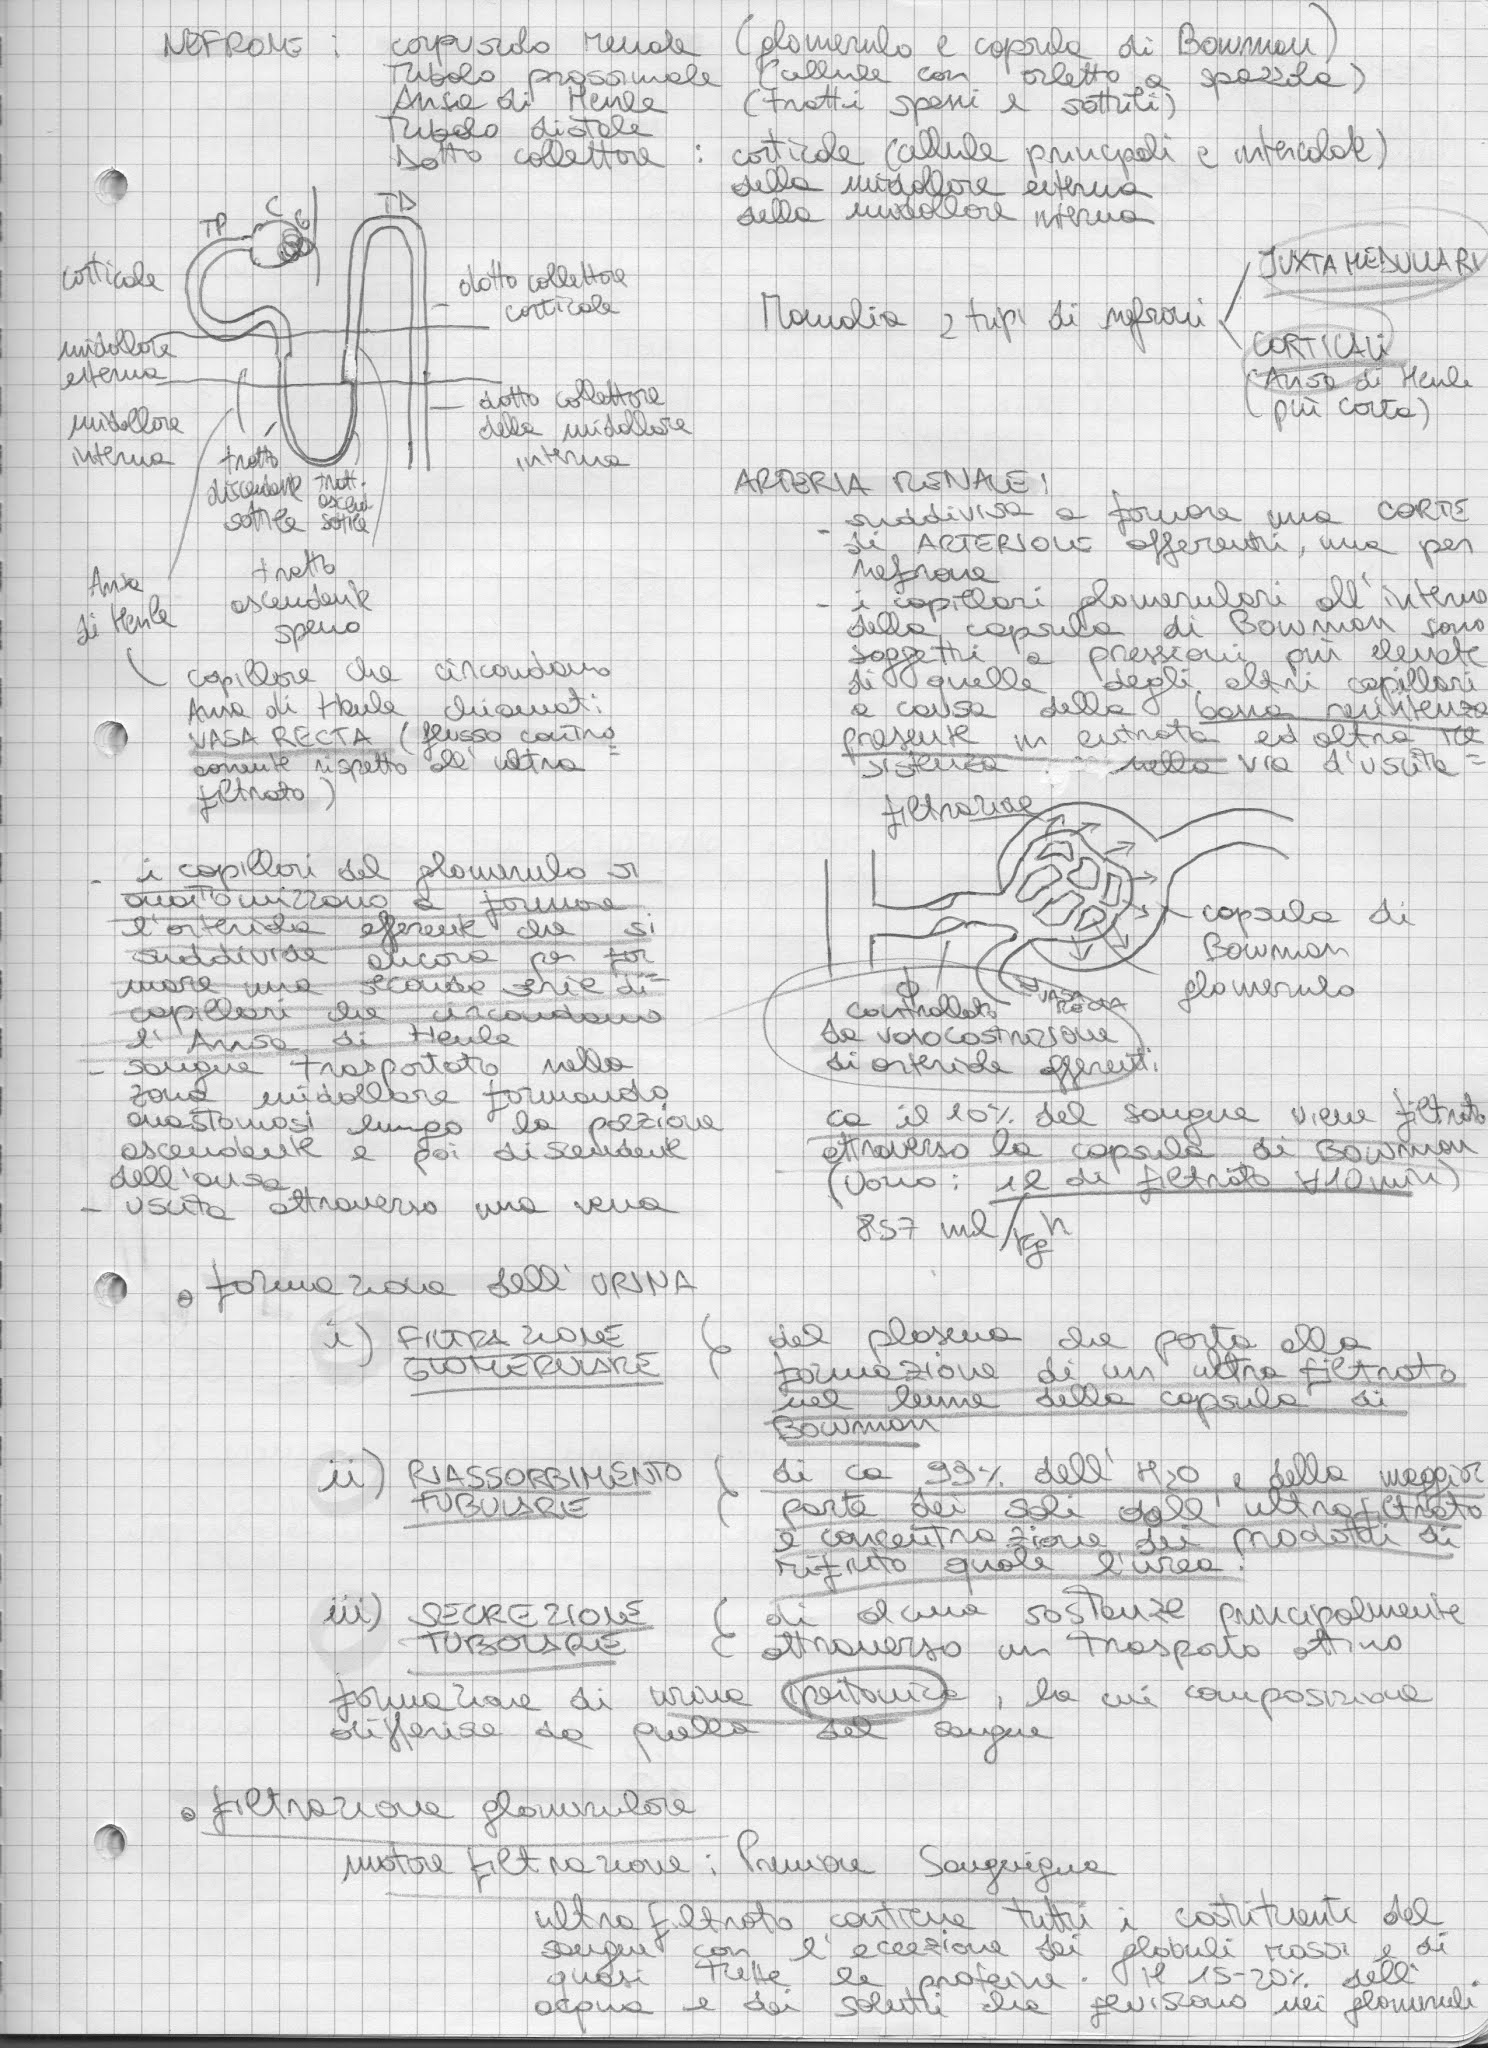 NEFRONE : corpuscolo renale (glomerulo e capsula di Bowman)
Tubolo prossimale (cellule con orletto a spazzola)
Ansa di Henle (tratti spessi e sottili)
Tubolo distale
Dotto collettore : corticale (cellule principali e intercalate)
della midollare esterna
della midollare interna
TP C G TD
corticale
midollare
esterna
midollare
interna
dotto collettore
corticale
dotto collettore
della midollare
interna
tratto
discendente
sottile
tratt.
ascend
sottile
tratto
ascendente
spesso
Ansa
di Henle
capillare che circondano
Ansa di Henle chiamati:
VASA RECTA (flusso contro=
corrente rispetto all'ultra
filtrato)
- i capillari del glomerulo si
anastomizzano a formare
l'arteriola efferente che si
suddivide ancora per for
mare una seconda serie di=
capillari che circondano
l'Ansa di Henle
- sangue trasportato nella
zona midollare formando
anastomosi lungo la porzione
ascendente e poi discendente
dell'ansa
- uscita attraverso una vena
Mamalia 2 tipi di nefroni
JUXTAMEDULLARI
CORTICALI
(Ansa di Henle
più corta)
ARTERIA RENALE:
- suddivisa a formare una CORTE
di ARTERIOLE afferenti, una per
nefrone
- i capillari glomerulari all'interno
della capsula di Bowman sono
soggetti a pressioni più elevate
di quelle degli altri capillari
a causa della bassa resistenza
presente in entrata ed altra re
sistenza nella via d'uscita =
filtrazione
capsula di
Bowman
glomerulo
VASA
RECTA
controllato
da vasocostrizione
di arteriole afferenti
ca il 10% del sangue viene filtrato
attraverso la capsula di Bowman
(Uomo: 1l di filtrato ∀10min)
857 ml/kg h
• formazione dell'URINA
i) FILTRAZIONE
GLOMERULARE
( del plasma che porta alla
formazione di un ultra filtrato
nel lume della capsula di
Bowman
ii) RIASSORBIMENTO
TUBULARE
( di ca 99% dell'H2O e della maggior
parte dei sali dall'ultrafiltrato
e concentrazione dei prodotti di
rifiuto quale l'urea.
iii) SECREZIONE
TUBULARE
( di alcune sostanze principalmente
attraverso un trasporto attivo
formazione di urina ipertonica, la cui composizione
differisce da quella del sangue
• filtrazione glomerulare
motore filtrazione: Pressione Sanguigna
ultrafiltrato contiene tutti i costituenti del
sangue con l'eccezione dei globuli rossi e di
quasi tutte le proteine. Il 15-20% dell'
acqua e dei soluti che fluiscono nei glomeruli